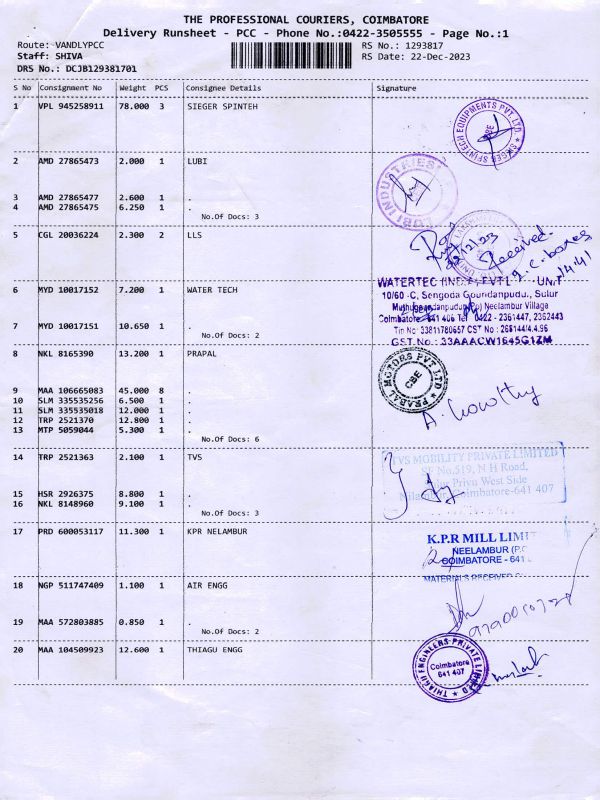 THE PROFESSIONAL COURIERS, COIMBATORE
Delivery Runsheet - PCC - Phone No.:0422-3505555 - Page No.:1
Route: VANDLYPCC
RS No.: 1293817
Staff: SHIVA
RS Date: 22-Dec-2023
DRS No.: DCJB129381701
S No Consignment No Weight PCS Consignee Details Signature
1 VPL 945258911 78.000 3 SIEGER SPINTEH
SIEGER SPINTECH EQUIPMENTS PVT. LTD
CBE
2 AMD 27865473 2.000 1 LUBI
LUBI INDUSTRIES
3 AMD 27865477 2.600 1 .
4 AMD 27865475 6.250 1 .
No.Of Docs: 3
5 CGL 20036224 2.300 2 LLS
22/12/23
Received
2. C. boxes
14.41
WATERTEC (INDIA) PVT LTD UNIT
6 MYD 10017152 7.200 1 WATER TECH
10/60 -C, Sengoda Goundanpudu., Sulur
Muthugoundanpudur(Po) Neelambur Village
Coimbatore- 641 406 Tel 0422 - 2361447, 2362443
7 MYD 10017151 10.650 1 .
Tin No: 33811780657 CST No : 268144/4.4.96
No.Of Docs: 2
GST No.: 33AAACW1645G1ZM
8 NKL 8165390 13.200 1 PRAPAL
PRABAL MOTORS PVT LTD
CBE
9 MAA 106665083 45.000 8 .
10 SLM 335535256 6.500 1 .
11 SLM 335535018 12.000 1 .
12 TRP 2521370 12.800 1 .
13 MTP 5059044 5.300 1 .
No.Of Docs: 6
14 TRP 2521363 2.100 1 TVS
TVS MOBILITY PRIVATE LIMITED
SF No.519, N H Road,
West Side
Coimbatore-641 407
15 HSR 2926375 8.800 1 .
16 NKL 8148960 9.100 1 .
No.Of Docs: 3
17 PRD 600053117 11.300 1 KPR NELAMBUR
K.P.R MILL LIMIT
NEELAMBUR (P.O
COIMBATORE - 641
MATERIALS RECEIVED
18 NGP 511747409 1.100 1 AIR ENGG
19 MAA 572803885 0.850 1 .
No.Of Docs: 2
20 MAA 104509923 12.600 1 THIAGU ENGG
THIAGU ENGINEERS PRIVATE LIMITED
Coimbatore
641 407